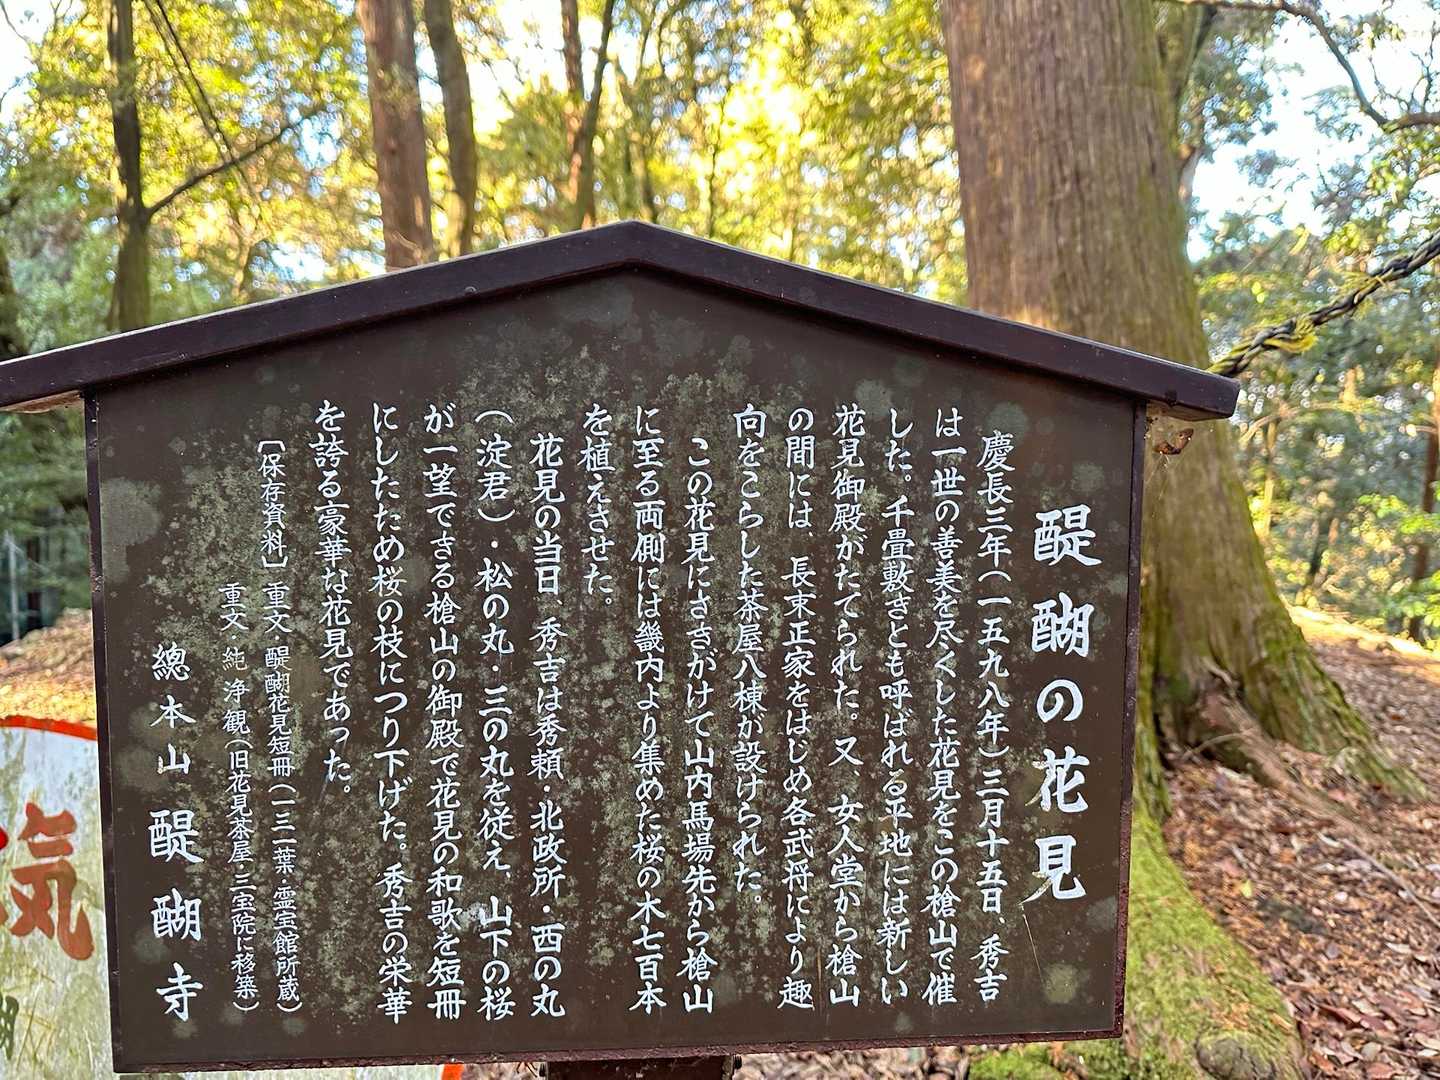 醍醐の花見
慶長三年（一五九八年）三月十五日、秀吉
は一世の善美を尽くした花見をこの槍山で催
した。千畳敷きとも呼ばれる平地には新しい
花見御殿がたてられた。又、女人堂から槍山
の間には、長束正家をはじめ各武将により趣
向をこらした茶屋八棟が設けられた。
この花見にさきがけて山内馬場先から槍山
に至る両側には畿内より集めた桜の木七百本
を植えさせた。
花見の当日、秀吉は秀頼・北政所・西の丸
（淀君）・松の丸・三の丸を従え、山下の桜
が一望できる槍山の御殿で花見の和歌を短冊
にしたため桜の枝につり下げた。秀吉の栄華
を誇る豪華な花見であった。
〔保存資料〕重文・醍醐花見短冊（一三一葉・霊宝館所蔵）
重文・純浄観（旧花見茶屋・三宝院に移築）
總本山 醍醐寺
気